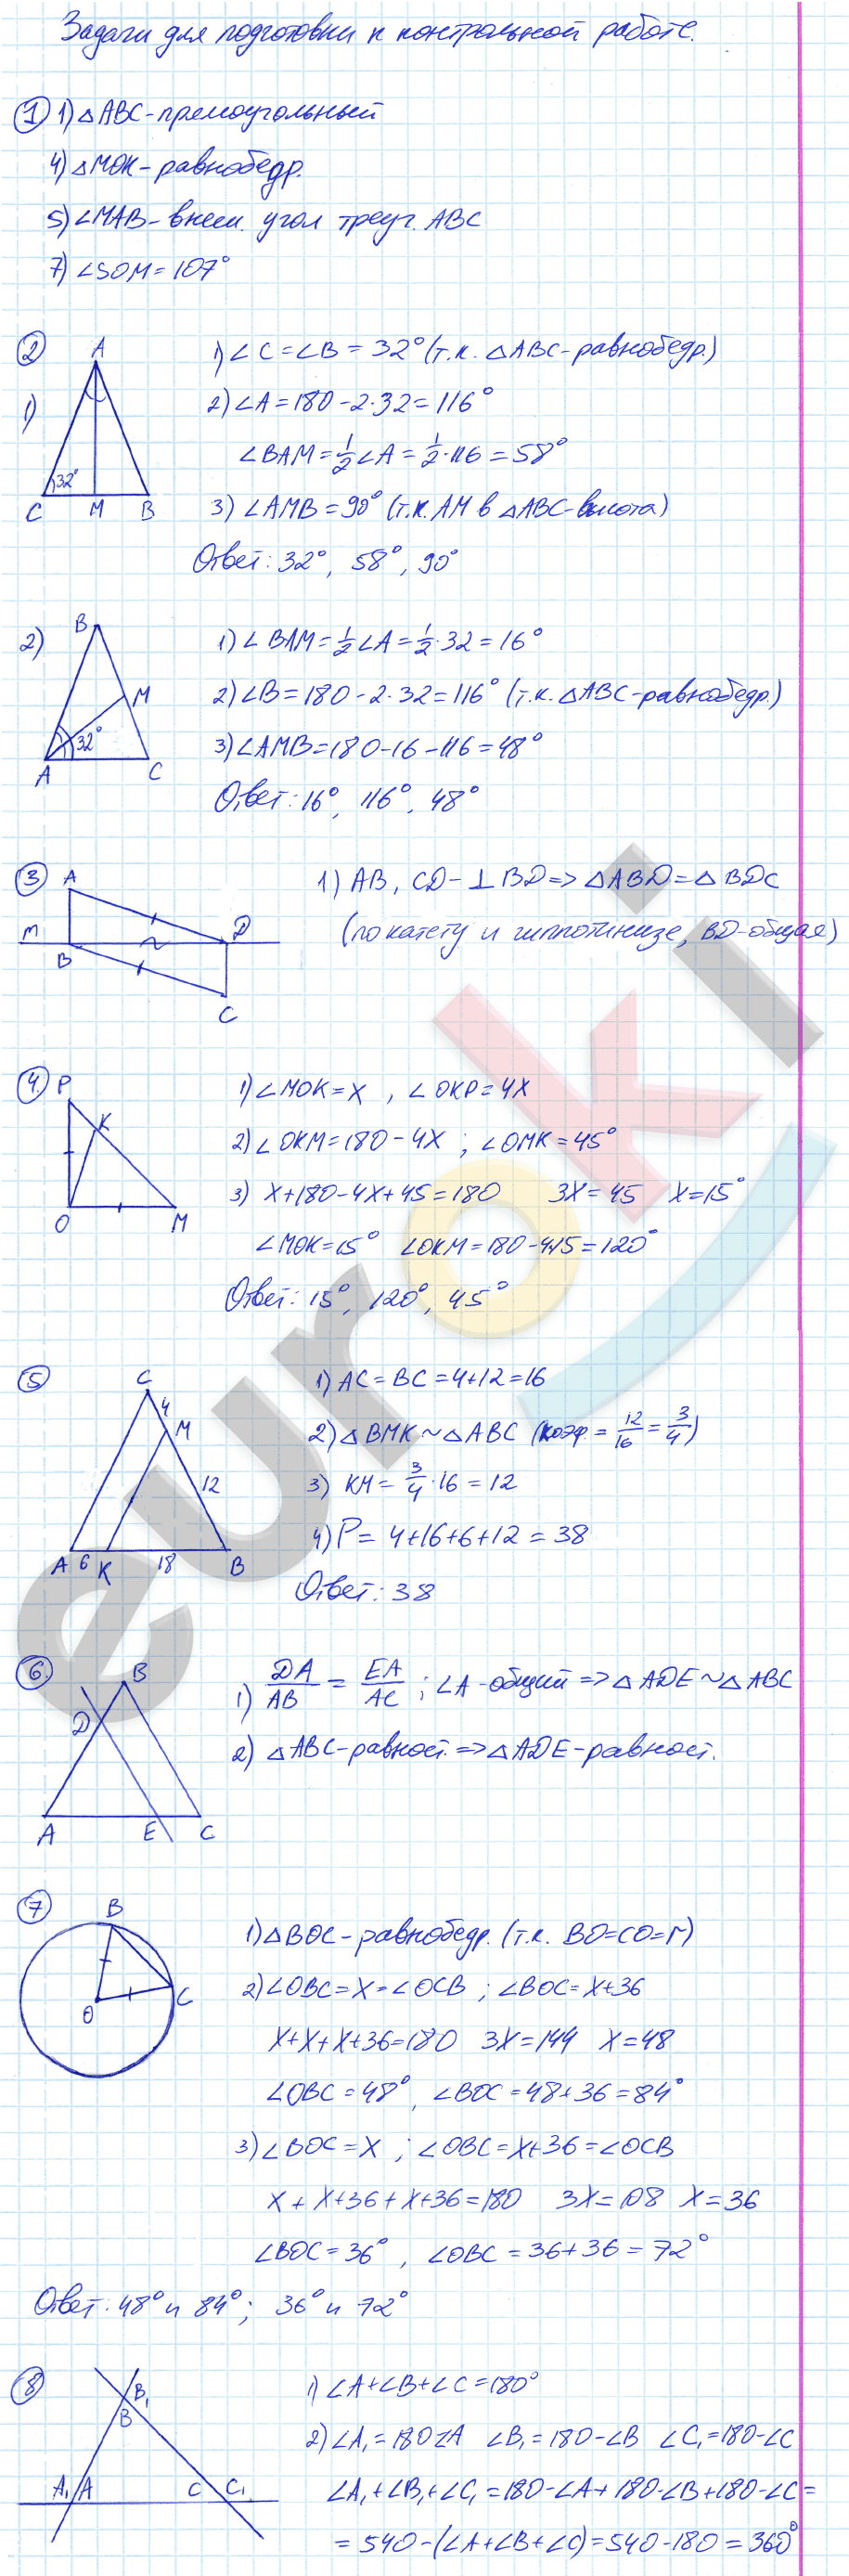 Задачи для подготовки к контрольной работе.
① 1) △ABC - прямоугольный
4) △MOK - равнобедр.
5) ∠MAB - внеш. угол треуг. ABC
7) ∠SOM = 107°
②
1)
A
32°
C M B
1) ∠C = ∠B = 32° (т.к. △ABC - равнобедр.)
2) ∠A = 180 - 2·32 = 116°
∠BAM = 1/2 ∠A = 1/2 · 116 = 58°
3) ∠AMB = 90° (т.к. AM в △ABC - высота)
Ответ: 32°, 58°, 90°
2)
B
M
32°
A C
1) ∠BAM = 1/2 ∠A = 1/2 · 32 = 16°
2) ∠B = 180 - 2·32 = 116° (т.к. △ABC - равнобедр.)
3) ∠AMB = 180 - 16 - 116 = 48°
Ответ: 16°, 116°, 48°
③
A
M D
B
C
1) AB, CD - ⊥ BD => △ABD = △BDC
(по катету и гиппотинизе, BD - общая)
④.
P
K
O M
1) ∠MOK = x , ∠OKP = 4x
2) ∠OKM = 180 - 4x ; ∠OMK = 45°
3) x + 180 - 4x + 45 = 180 3x = 45 x = 15°
∠MOK = 15° ∠OKM = 180 - 4·15 = 120°
Ответ: 15°, 120°, 45°
⑤
C
4
M
12
A 6 K 18 B
1) AC = BC = 4 + 12 = 16
2) △BMK ~ △ABC (коэф. = 12/16 = 3/4)
3) KM = 3/4 · 16 = 12
4) P = 4 + 16 + 6 + 12 = 38
Ответ: 38
⑥.
B
D
A E C
1) DA/AB = EA/AC ; ∠A - общий => △ADE ~ △ABC
2) △ABC - равност. => △ADE - равност.
⑦
B
C
O
1) △BOC - равнобедр. (т.к. BO = CO = r)
2) ∠OBC = x = ∠OCB ; ∠BOC = x + 36
x + x + x + 36 = 180 3x = 144 x = 48
∠OBC = 48°, ∠BOC = 48 + 36 = 84°
3) ∠BOC = x ; ∠OBC = x + 36 = ∠OCB
x + x + 36 + x + 36 = 180 3x = 108 x = 36
∠BOC = 36° , ∠OBC = 36 + 36 = 72°
Ответ: 48° и 84°; 36° и 72°
⑧
B₁
B
A₁ A C C₁
1) ∠A + ∠B + ∠C = 180°
2) ∠A₁ = 180 - ∠A ∠B₁ = 180 - ∠B ∠C₁ = 180 - ∠C
∠A₁ + ∠B₁ + ∠C₁ = 180 - ∠A + 180 - ∠B + 180 - ∠C =
= 540 - (∠A + ∠B + ∠C) = 540 - 180 = 360°
euroki